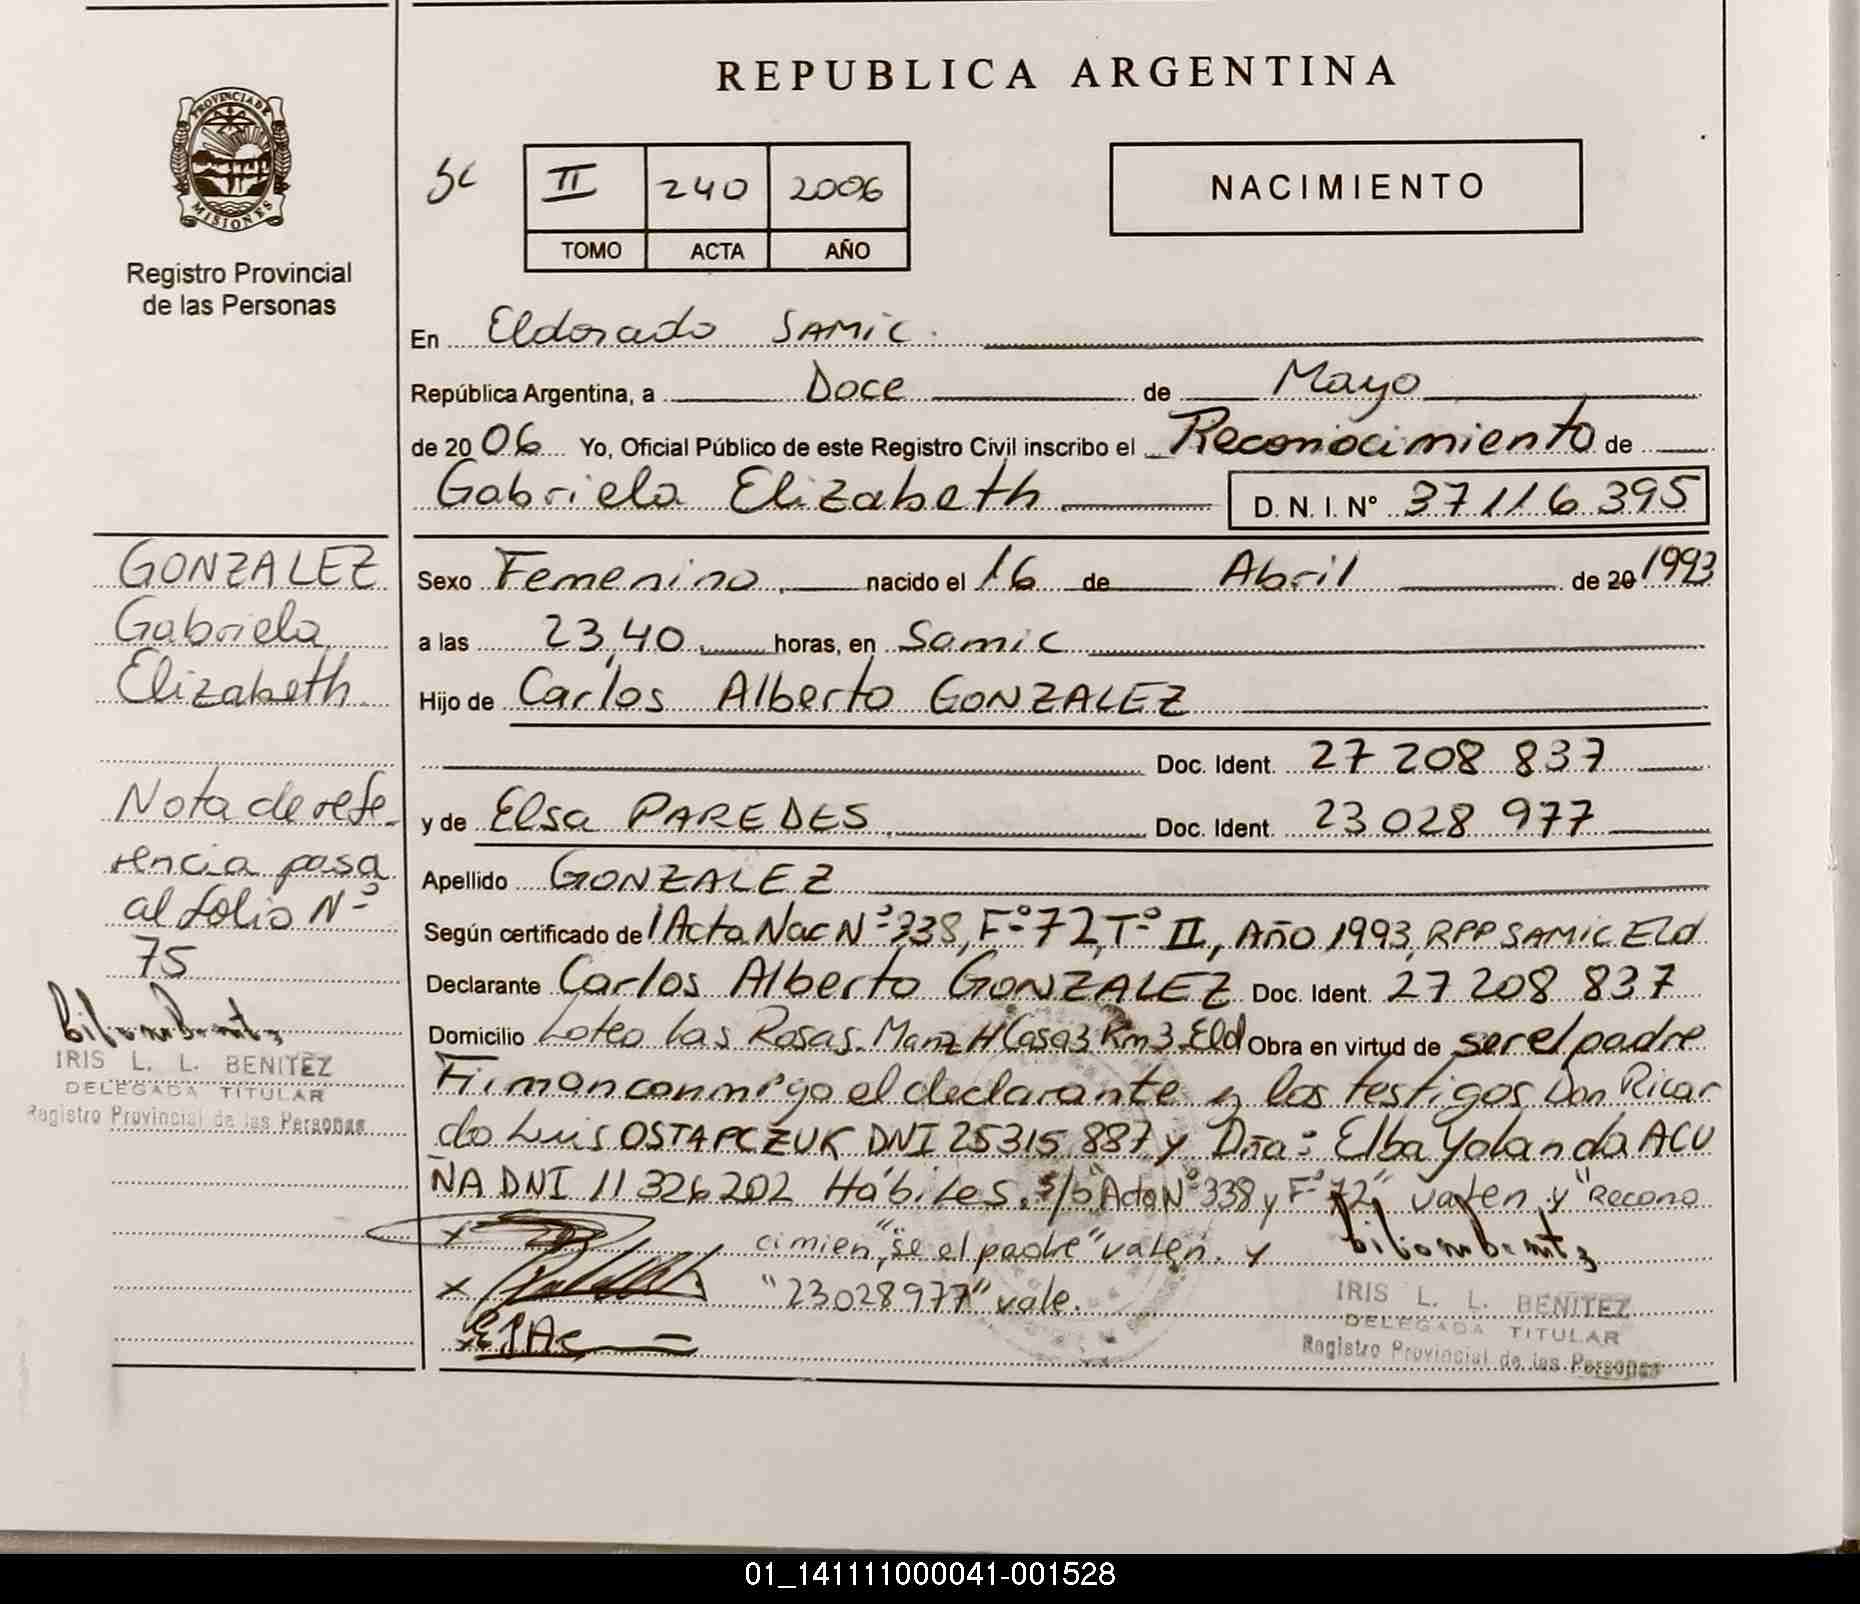 REPUBLICA ARGENTINA
PROVINCIA DE
MISIONES
Registro Provincial
de las Personas
II 240 2006
TOMO ACTA AÑO
NACIMIENTO
En Eldorado SAMIC.
República Argentina, a Doce de Mayo
de 2006 Yo, Oficial Público de este Registro Civil inscribo el Reconocimiento de
Gabriela Elizabeth D.N.I.Nº 37116395
GONZALEZ
Gabriela
Elizabeth
Sexo Femenino nacido el 16 de Abril de 20 1993
a las 23,40 horas, en Samic
Hijo de Carlos Alberto GONZALEZ
Doc. Ident. 27 208 837
y de Elsa PAREDES Doc. Ident. 23 028 977
Apellido GONZALEZ
Según certificado de 1 Acta Nac Nº 338, Fº 72, Tº II, Año 1993, RPP SAMIC Eld
Declarante Carlos Alberto GONZALEZ Doc. Ident. 27 208 837
Domicilio Loteo las Rosas. Manz H Casa3 Km3 Eld Obra en virtud de ser el padre
Firman conmigo el declarante y los testigos Don Ricar
do Luis OSTAPCZUK DNI 25315 887 y Dña: Elba Yolanda ACU
ÑA DNI 11 326202 Hábiles. s/b "Acta Nº 338 y Fº 72" valen y "Recono
cimien", "se el padre" valen. y
"23028977" vale.
Nota de refe
rencia pasa
al folio Nº
75
IRIS L. L. BENITEZ
DELEGADA TITULAR
Registro Provincial de las Personas
IRIS L. L. BENITEZ
DELEGADA TITULAR
Registro Provincial de las Personas
01_141111000041-001528